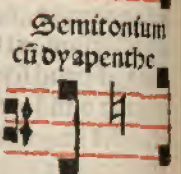 Semitonium
cũ dyapenthe